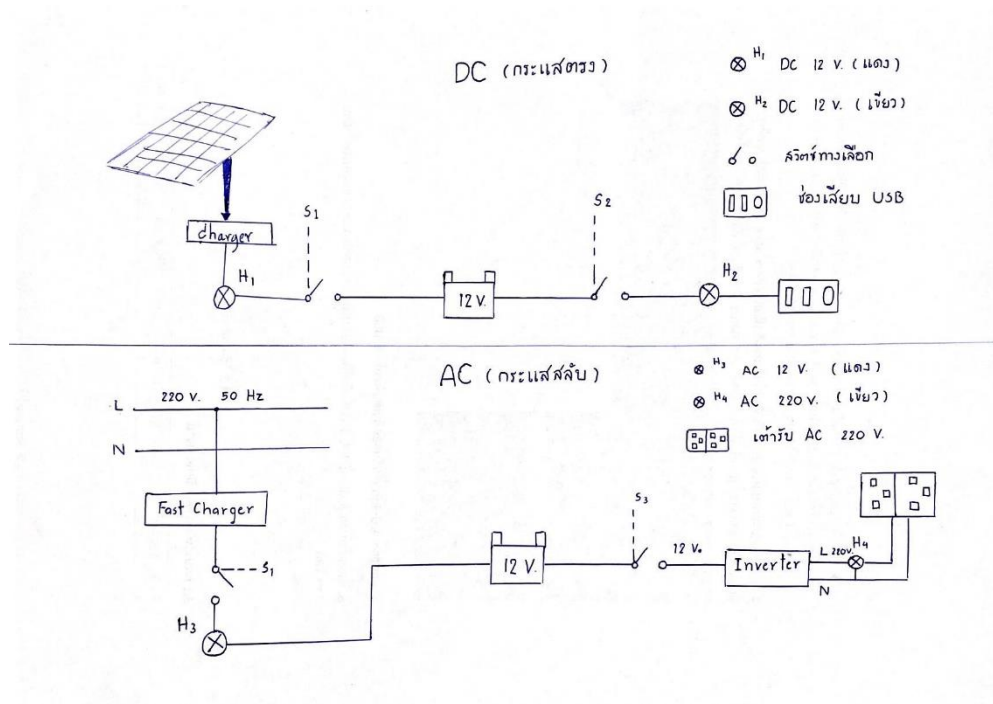 DC (กระแสตรง)
H1 DC 12 V. (แดง)
H2 DC 12 V. (เขียว)
สวิตซ์ทางเลือก
ช่องเสียบ USB
S1
S2
Charger
H1
12 V.
H2
AC (กระแสสลับ)
H3 AC 12 V. (แดง)
H4 AC 220 V. (เขียว)
เต้ารับ AC 220 V.
L 220 V. 50 Hz
N
Fast Charger
S1
H3
12 V.
S3
12 V.
Inverter
L 220V. H4
N